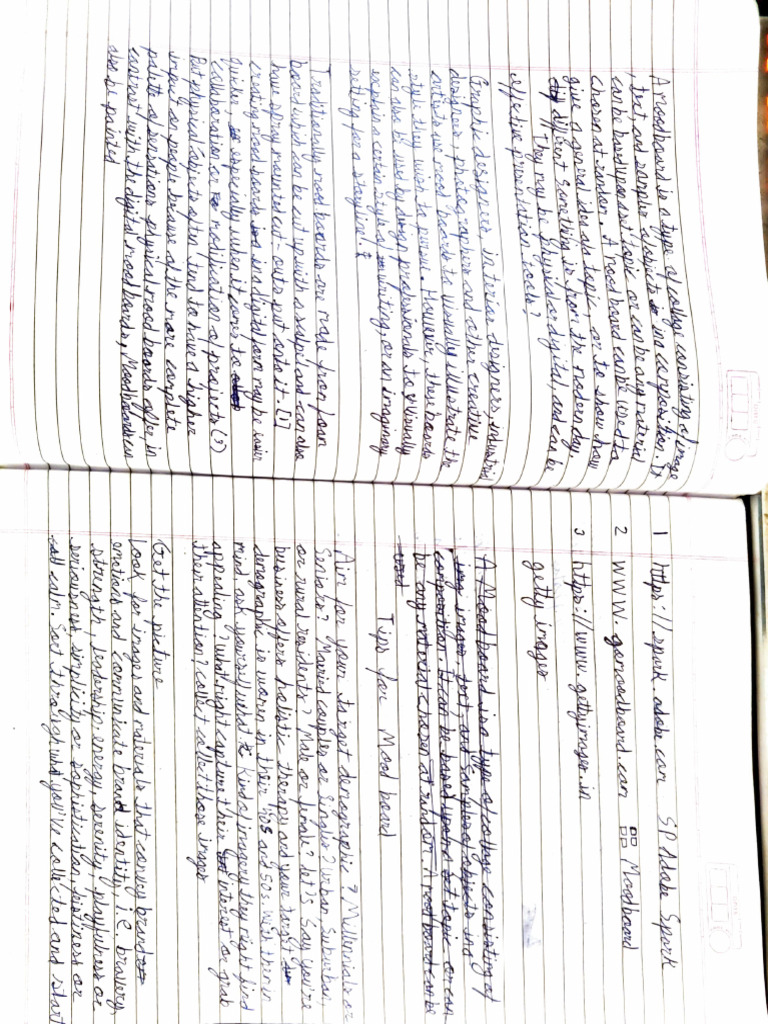 A moodboard is a type of collage consisting of image
, text and sampler of objects in a composition. It
can be based upon a set topic or can be any material
chosen at random. A mood board can be used to
give a general idea of a topic, or to show how
different something is from the modern day.
They may be Physical or digital, and can be
effective presentation tools?
Graphic designers, interior designers, industrial
designers, photographers and other creative
artists use mood boards to visually illustrate the
style they wish to pursue. However, they boards
can also be used by design professionals to visually
explain a certain style of writing, or an imaginary
setting for a storyline.
Traditionally mood boards are made from foam
board which can be cut up with a scalpel and can also
have spray mounted cut-outs put onto it. [1]
creating mood boards in a digital form may be easier
Quicker, especially when it comes to
Collaboration or modification of projects (?)
But physical objects often tend to have a higher
impact on people because of the more complete
palette of sensations physical mood boards offer, in
contrast with the digital mood boards, Moodboards can
also be painted
1 https://spark.adobe.com SP Adobe Spark
2 www.gomoodboard.com Moodboard
3 https://www.gettyimages.in
getty images
A Moodboard is a type of collage consisting of
images, text, and samples of objects in a
composition. It can be based upon a set topic or can
be any material chosen at random. A mood board can be
used
Tips for Mood board
Aim for your target demographic? Millennials or
Seniors? Married couples or Singles? Urban, Suburban,
or rural residents? Male or female? Let's Say you're
business offers holistic therapy and your target
demographic is women in their 40s and 50s. With them in
mind, ask yourself what kind of imagery they might find
appealing? What might capture their interest or grab
their attention? collect collect those images
Get the picture
Look for images and materials that convey brand
emotions and Communicate brand identity, i.e. bravery,
strength, leadership energy, serenity, playfulness or
seriousness, simplicity or sophistication, bustiness or
calm. Sort through what you've collected and start